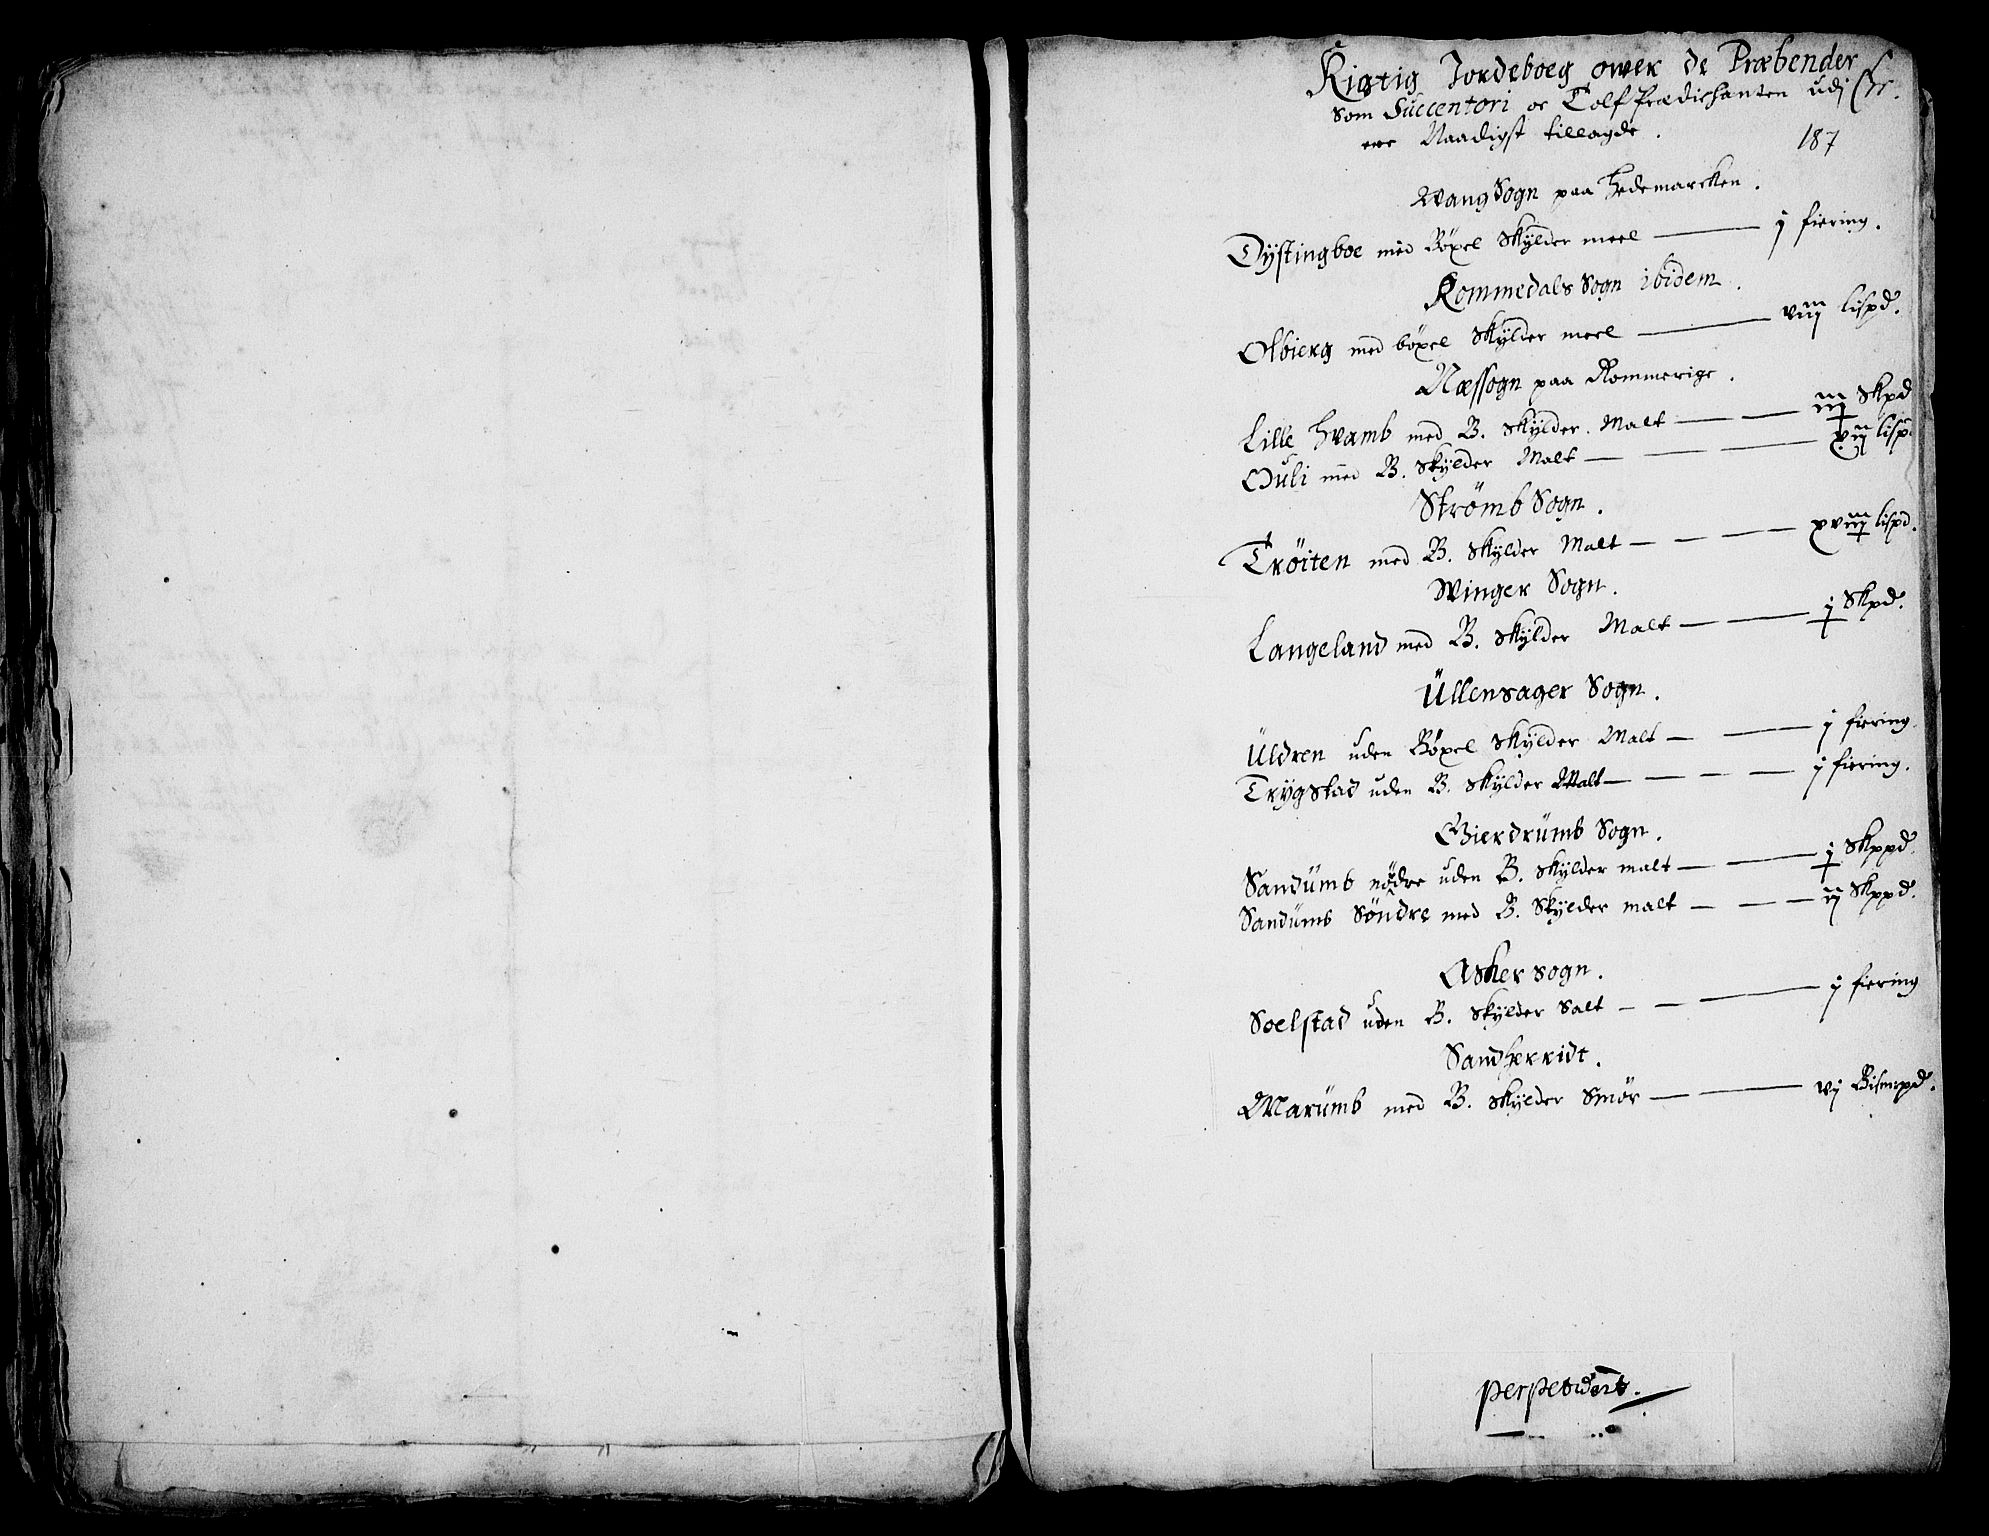 Rigtig Jordeboeg ower de Præbender
Som Succentori oc Tolfprædichanten udj Chr.
ere Naadigst tillagde.
187
Wang Sogn paa Hedemarcken.
Dystingboe med Böxel Skylder meel — j fiering.
Rommedals Sogn ibidem.
Olbierg med böxel Skylder meel — viij lispd.
Næssogn paa Rommerige.
Lille Hvamb med B. Skylder Malt — iij Skpd
Ouli med B. Skylder Malt — vij lispd.
Strömb Sogn.
Tröiten med B. Skylder Malt — xviij lispd.
Winger Sogn.
Langeland med B. Skylder Malt — j Skpd.
Üllensager Sogn.
Üldren uden Böxel Skylder Malt — j fiering.
Trygstad uden B. Skylder Malt — j fiering.
Gierdrümb Sogn.
Sandümb nödre uden B. Skylder malt — j Skppd.
Sandümb Söndre med B. Skylder malt — ij Skppd.
Asker sogn.
Soelstad uden B. Skylder Salt — j fiering
Sandherridt.
Marümb med B. Skylder Smör — vj Bismrpd.
perpetuert.